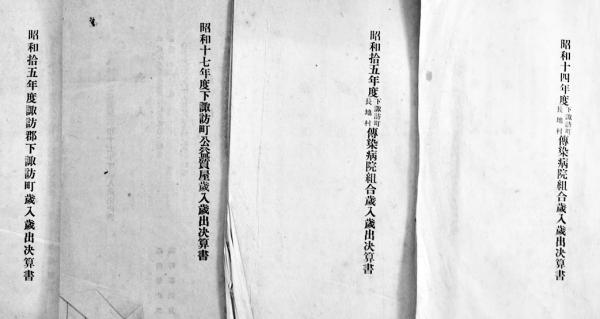 昭和十四年度下諏訪町長地村傳染病院組合歳入歳出決算書
昭和拾五年度下諏訪町長地村傳染病院組合歳入歳出決算書
昭和十七年度下諏訪町公益質屋歳入歳出決算書
昭和拾五年度諏訪郡下諏訪町歳入歳出決算書